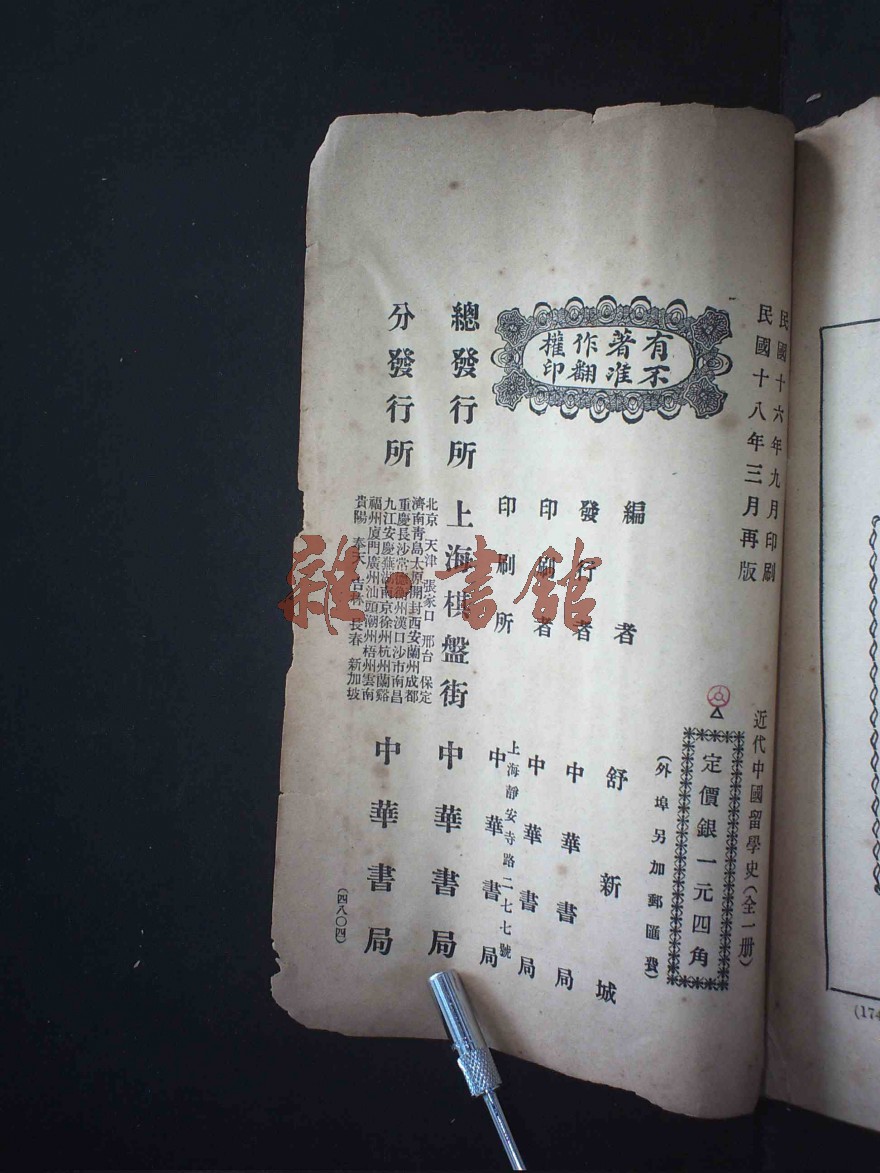 民國十六年九月印刷
民國十八年三月再版
近代中國留學史（全一册）
定價銀一元四角
（外埠另加郵匯費）
有著作權
不准翻印
編者 舒新城
發行者 中華書局
印刷者 中華書局
印刷所 上海靜安寺路二七七號 中華書局
總發行所 上海棋盤街 中華書局
分發行所
北京 天津 張家口 邢台 保定
濟南青島太原開封西安蘭州成都
重慶長沙常德 州漢口沙市南昌
九江安慶蕪湖南京徐州杭州蘭谿
福州廈門廣州汕頭潮州梧州雲南
貴陽 奉天 吉林 長春 新加坡
中華書局
（四八〇四）
雜·書館
(174